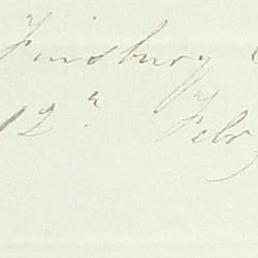 Finsbury
12th Febr